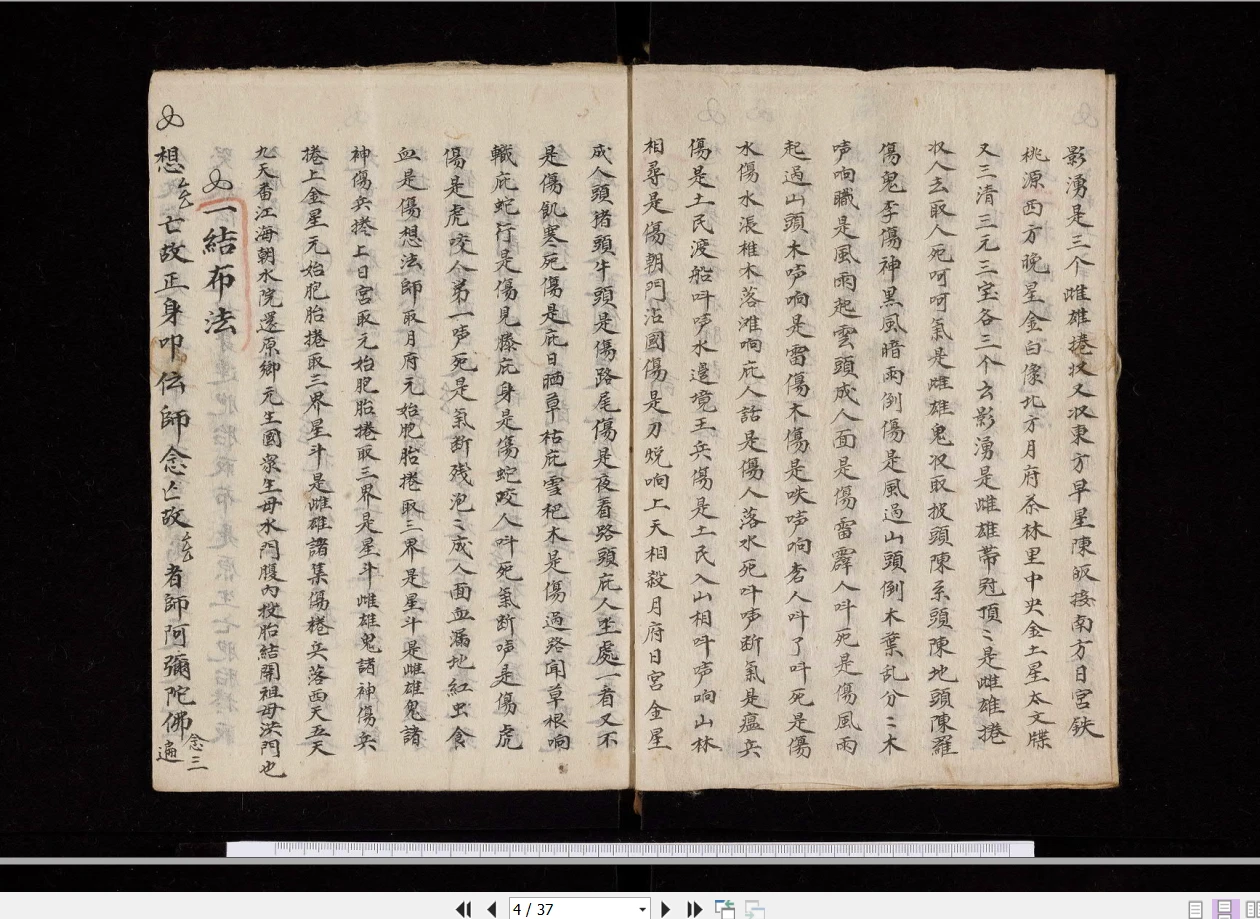 影湧是三个雌雄捲扠又収東方早星陳皈接南方日宮鉄
桃源西方晚星金白像北方月府茶林里中央金土星太文牒
又三清三元三宝各三个玄影湧是雌雄帶冠頂〻是雌雄捲
収入去取人死呵呵氣是雌雄鬼収取披頭陳系頭陳地頭陳羅
傷鬼李傷神黒風暗雨倒傷是風過山頭倒木葉乱分〻木
唥响職是風雨起雲頭成人面是傷雷霹人呌死是傷風雨
起過山頭木唥响是雷傷木傷是唊唥响者人呌了呌死是傷
水傷水漲椎木落滩响庇人話是傷人落水死呌唥断氣是瘟兵
傷是土民渡船呌唥水邊境王兵傷是土民入山相呌唥响山林
相尋是傷朝門沾國傷是刀晚响上天相殺月府日宮金星
成人頭猪頭牛頭是傷路尾傷是夜看路頭庇人坐處一者又不
是傷飢寒死傷是庇日晒草枯庇雪杷木是傷過路闻草根响
轍庇蛇行是傷見滕庇身是傷蛇咬人呌死氣断唥是傷虎
傷是虎咬人第一唥死是氣断残泡〻成人面血漏地紅虫食
血是傷想法師取月府元始肥胎捲取三界是星斗是雌雄鬼諸
神傷兵捲上日宮取元始肥胎捲取三界是星斗雌雄鬼諸神傷兵
捲上金星元始肥胎捲取三界星斗是雌雄諸集傷捲兵落西天五天
九天番江海朝水院還原鄉元生國衆生母水門腹內投胎結開祖母洪門也
一結布法
想厶亡故正身叩伝師念亡故厶者師阿彌陀佛念三遍
4 / 37